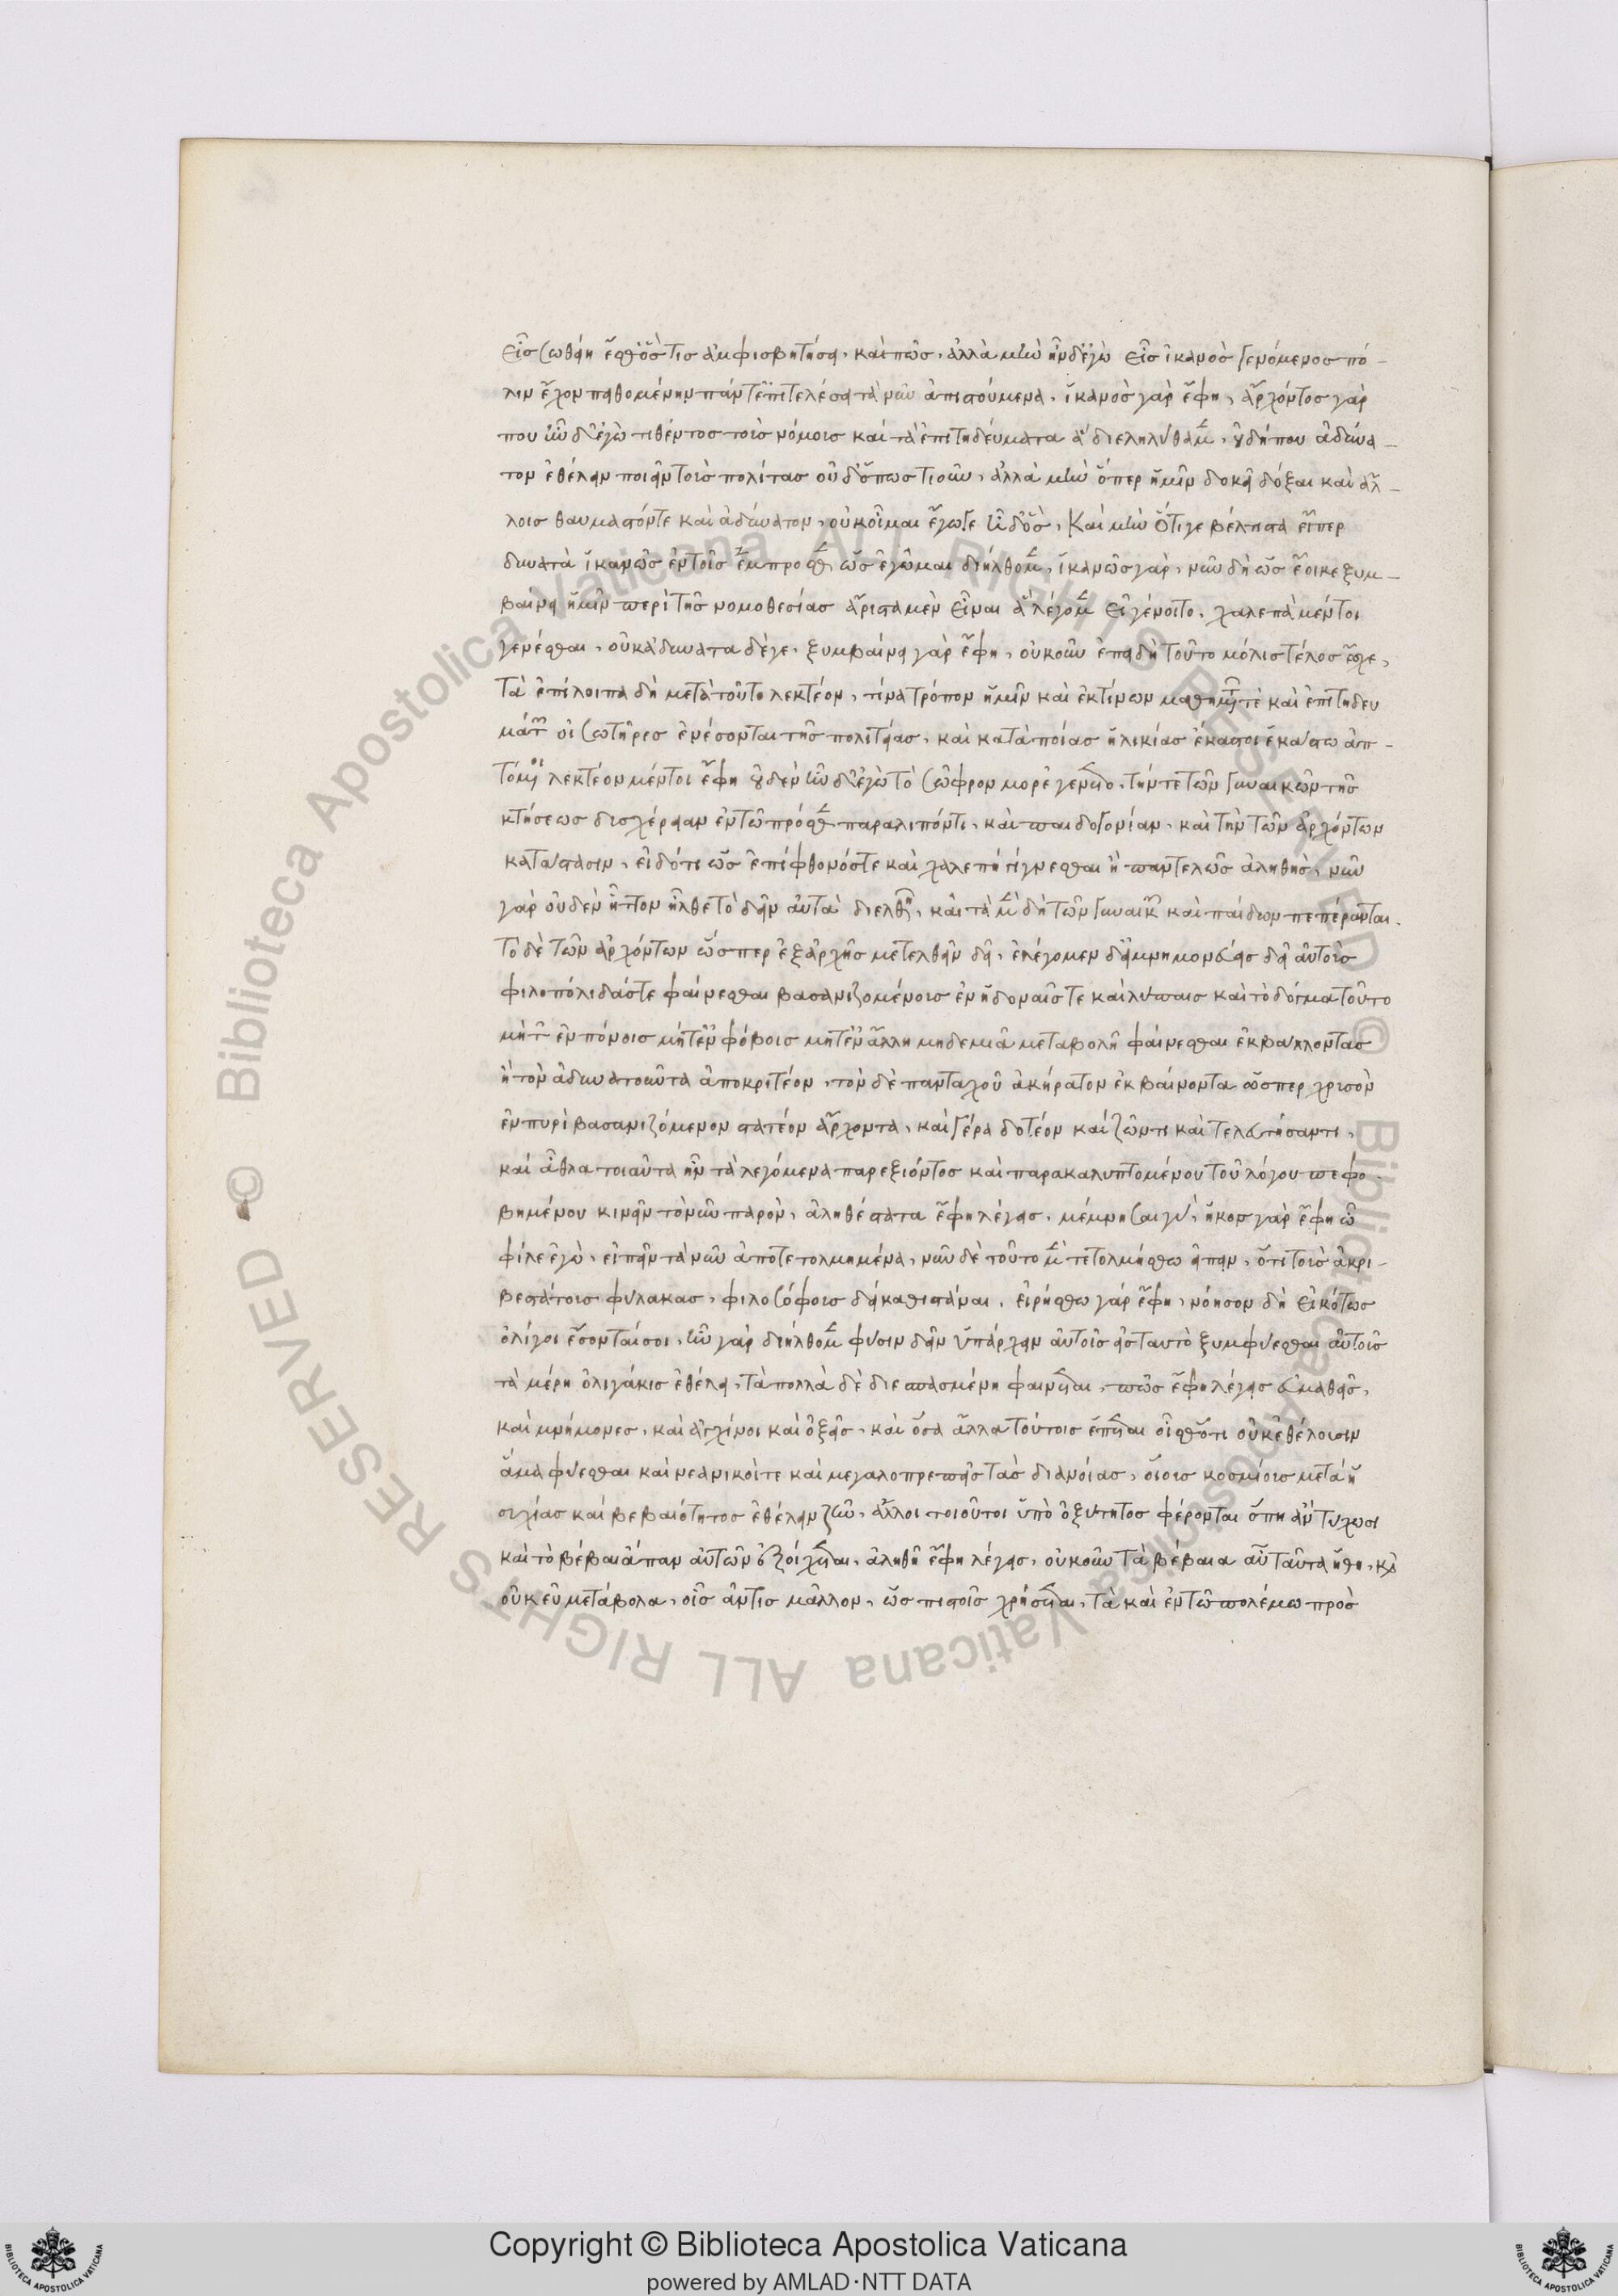 εἷς σωθείη ἔσθ' ὅστις ἀμφισβητήσει, καὶ πῶς, ἀλλὰ μὴν ἦν δ' ἐγὼ εἷς ἱκανὸς γενόμενος πό-
λιν ἔχων πειθομένην πάντ' ἐπιτελέσαι τὰ νῦν ἀπιστούμενα, ἱκανὸς γὰρ ἔφη, ἄρχοντος γάρ
που ἦν δ' ἐγὼ τιθέντος τοὺς νόμους καὶ τὰ ἐπιτηδεύματα ἃ διεληλύθαμεν, οὐ δήπου ἀδύνα-
τον ἐθέλειν ποιεῖν τοὺς πολίτας οὐδ' ὁπωστιοῦν, ἀλλὰ μὴν ἅπερ ἡμῖν δοκεῖ δόξαι καὶ ἄλ-
λοις θαυμαστόν τε καὶ ἀδύνατον, οὐκ οἶμαι ἔγωγε ἦ δ' ὅς, καὶ μὴν ὅτι γε βέλτιστα εἴπερ
δυνατὰ ἱκανῶς ἐν τοῖς ἔμπροσθεν ὡς ἐγᾦμαι διήλθομεν, ἱκανῶς γάρ, νῦν δὴ ὡς ἔοικε ξυμ-
βαίνει ἡμῖν περὶ τῆς νομοθεσίας ἄριστα μὲν εἶναι ἃ λέγομεν εἰ γένοιτο, χαλεπὰ μέντοι
γενέσθαι, οὐκ ἀδύνατα δέ γε, ξυμβαίνει γὰρ ἔφη, οὐκοῦν ἐπειδὴ τοῦτο μόλις τέλος ἔσχε,
τὰ ἐπίλοιπα δὴ μετὰ τοῦτο λεκτέον, τίνα τρόπον ἡμῖν καὶ ἐκ τίνων μαθημάτων τε καὶ ἐπιτηδευ
μάτων οἱ σωτῆρες ἐνέσονται τῆς πολιτείας, καὶ κατὰ ποίας ἡλικίας ἕκαστοι ἑκάστων ἁπ-
τόμενοι λεκτέον μέντοι ἔφη οὐδὲν ἦν δ' ἐγὼ τὸ σῶφρον μοι ἐγένετο, τήν τε τῶν γυναικῶν τῆς
κτήσεως δυσχέρειαν ἐν τῷ πρόσθεν παραλιπόντι, καὶ παιδογονίαν, καὶ τὴν τῶν ἀρχόντων
κατάστασιν, εἰδότι ὡς ἐπίφθονός τε καὶ χαλεπὴ γίγνεσθαι ἡ παντελῶς ἀληθής, νῦν
γὰρ οὐδὲν ἧττον ἦλθε τὸ δεῖν αὐτὰ διελθεῖν, καὶ τὰ μὲν δὴ τῶν γυναικῶν καὶ παίδων πεπέρανται.
τὸ δὲ τῶν ἀρχόντων ὥσπερ ἐξ ἀρχῆς μετελθεῖν δεῖ, ἐλέγομεν δ' εἰ μνημονεύεις δεῖ αὐτοὺς
φιλοπόλιδάς τε φαίνεσθαι βασανιζομένους ἐν ἡδοναῖς τε καὶ λύπαις καὶ τὸ δόγμα τοῦτο
μήτ' ἐν πόνοις μήτ' ἐν φόβοις μήτ' ἐν ἄλλῃ μηδεμιᾷ μεταβολῇ φαίνεσθαι ἐκβάλλοντας
ἢ τὸν ἀδυνατοῦντα ἀποκριτέον, τὸν δὲ πανταχοῦ ἀκήρατον ἐκβαίνοντα ὥσπερ χρυσὸν
ἐν πυρὶ βασανιζόμενον στατέον ἄρχοντα, καὶ γέρα δοτέον καὶ ζῶντι καὶ τελευτήσαντι,
καὶ ἆθλα τοιαῦτα ἦν τὰ λεγόμενα παρεξιόντος καὶ παρακαλυπτομένου τοῦ λόγου πεφο
βημένου κινεῖν τὸ νῦν παρόν, ἀληθέστατα ἔφη λέγεις, μέμνημαι γάρ, ὤκνουν γὰρ ἔφην ὦ
φίλε ἐγώ, εἰπεῖν τὰ νῦν ἀποτετολμημένα, νῦν δὲ τοῦτο μὲν τετολμήσθω εἰπεῖν, ὅτι τοὺς ἀκρι-
βεστάτους φύλακας, φιλοσόφους δεῖ καθιστάναι, εἰρήσθω γὰρ ἔφη, νόησον δὴ εἰκότως
ὀλίγοι ἔσονταί σοι, ἣν γὰρ διήλθομεν φύσιν δεῖν ὑπάρχειν αὐτοῖς εἰς ταυτὸ ξυμφύεσθαι αὐτοῖς
τὰ μέρη ὀλιγάκις ἐθέλει, τὰ πολλὰ δὲ διεσπασμένη φαίνεται, πῶς ἔφη λέγεις εὐμαθεῖς,
καὶ μνήμονες, καὶ ἀγχίνοι καὶ ὀξεῖς, καὶ ὅσα ἄλλα τούτοις ἕπεται οἶσθ' ὅτι οὐκ ἐθέλουσιν
ἅμα φύεσθαι καὶ νεανικοί τε καὶ μεγαλοπρεπεῖς τὰς διανοίας, οἵους κοσμίους μετὰ ἡ
συχίας καὶ βεβαιότητος ἐθέλειν ζῆν, ἀλλ' οἱ τοιοῦτοι ὑπὸ ὀξύτητος φέρονται ὅπῃ ἂν τύχωσι
καὶ τὸ βέβαιον ἅπαν αὐτῶν ἐξοίχεται, ἀληθῆ ἔφη λέγεις, οὐκοῦν τὰ βέβαια αὖ ταῦτα ἤθη, καὶ
οὐκ εὐμετάβολα, οἷς ἄν τις μᾶλλον, ὡς πιστοῖς χρήσεται, τὰ καὶ ἐν τῷ πολέμῳ πρὸς
Copyright © Biblioteca Apostolica Vaticana
powered by AMLAD·NTT DATA